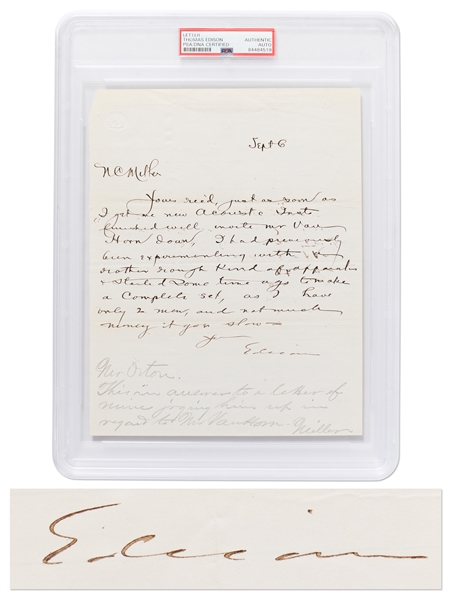 LETTER
THOMAS EDISON
PSA/DNA CERTIFIED
AUTHENTIC
AUTO
PSA
84484518
Sept 6
N C Miller
Yours recd, just as soon as
I get me new Acoustic Insts
finished will invite Mr Van
Horn down, I had previously
been experimenting with
rather rough kind of apparatus
& started some time ago to make
a complete set, as I have
only 2 men, and not much
money it goes slow
Edison
Mr Orton.
This is answer to a letter of
mine jogging him up in
regard to Mr Van Horn Miller
Edison